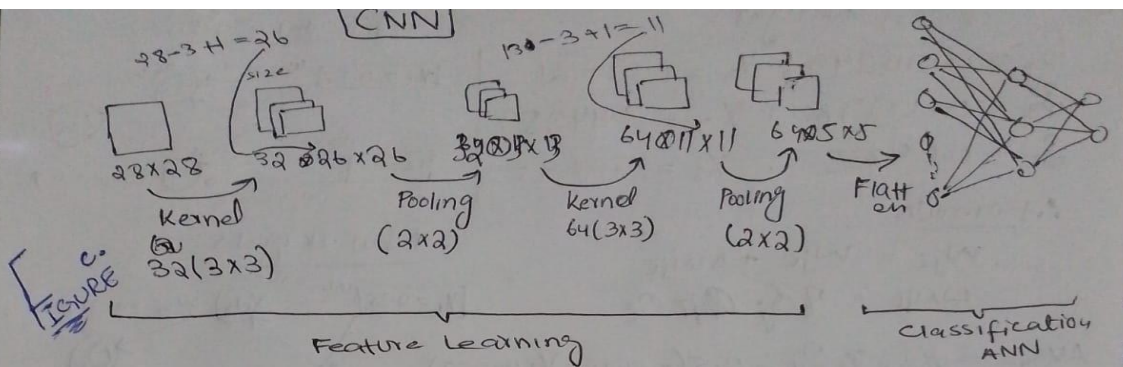 CNN
28-3+1=26
size
13-3+1=11
28×28
32@26×26
32@13×13
64@11×11
64@5×5
Kernel
32(3×3)
Pooling
(2×2)
Kernel
64(3×3)
Pooling
(2×2)
Flatt
en
c.
FIGURE
Feature Learning
Classification
ANN